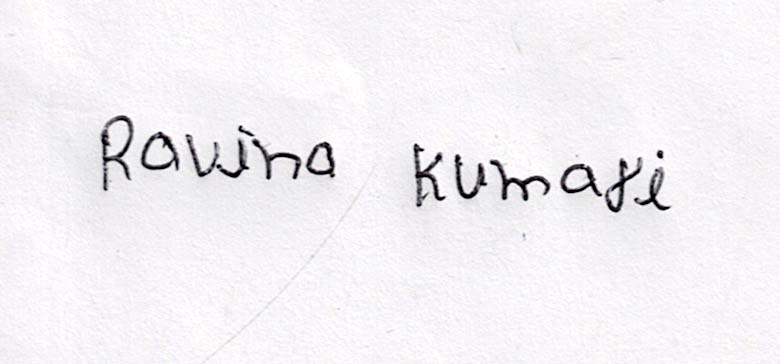 Ravina Kumari